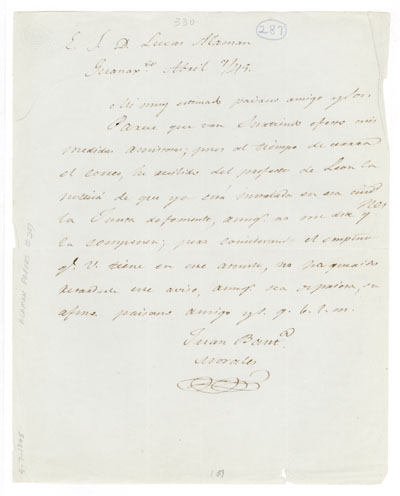 330
287
E. S. D. Lucas Alaman
Guanaxto. Abril 7/45.
Mi muy estimado paisano amigo y Sor.
Parece que van surtiendo efecto mis
medidas ; pues al tiempo de cerrar
el correo, he recibido del prefecto de Leon la
noticia de que ya está instalada en esa ciud
la Junta de fomento, aunq. no me dice qnes
la componen; pero considerando el empeño
q. V. tiene en este asunto, no he querido
retardarle este aviso, aunq. sea de priesa, su
afmo. paisano amigo q. b. s. m.
Juan Baut.a
Morales
ALAMAN PAPERS # 287
4-7-1845
(1)